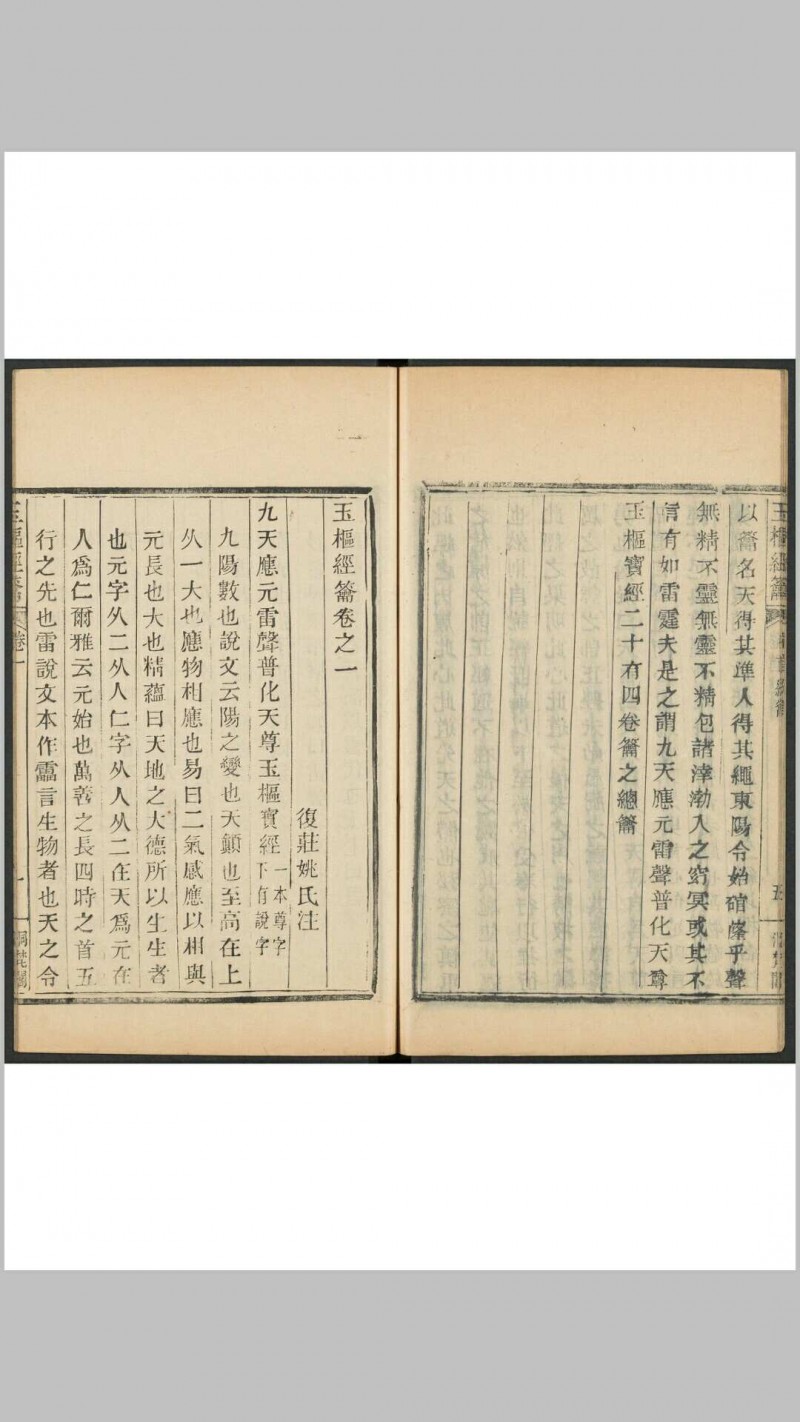 玉樞經籥
五
以籥名天得其準人得其繩東陽令始碏㟴乎聲
無精不靈無靈不精包諸滓渤入之窈冥或其不
信有如雷霆夫是之謂九天應元雷聲普化天尊
玉樞寶經二十有四卷籥之總籥
玉樞經籥卷之一
復莊姚氏注
九天應元雷聲普化天尊玉樞寶經一本尊字下有說字
九陽數也說文云陽之變也天顚也至高在上
从一大也應物相應也易曰二氣感應以相與
元長也大也精蘊曰天地之大德所以生生者
也元字从二从人仁字从人从二在天爲元在
人爲仁爾雅云元始也萬善之長四時之首五
行之先也雷說文本作靁言生物者也天之令
玉樞經籥 卷一
一